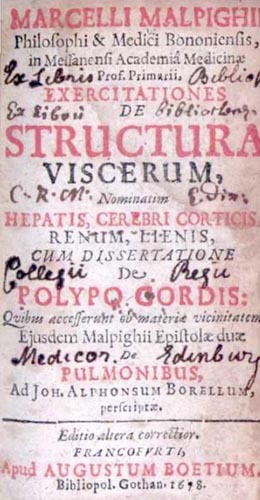 MARCELLI MALPIGHII
Philosophi & Medici Bononiensis,
in Messanensi Academiâ Medicinæ
Ex Libris Prof. Primarii,
EXERCITATIONES
Ex Libris DE Bibliothecæ
STRUCTURA
VISCERUM,
C. R. M. Nominatim Edin.
HEPATIS, CEREBRI CORTICIS,
RENUM, LIENIS,
CUM DISSERTATIONE
Collegii De Regii
POLYPO CORDIS:
Quibus accesserunt ob materiæ vicinitatem
Ejusdem Malpighii Epistolæ duæ
Medicor. De Edinburg
PULMONIBUS,
Ad JOH. ALPHONSUM BORELLUM,
perscriptæ.
Editio altera correctior.
FRANCOFURTI,
Apud AUGUSTUM BOETIUM,
Bibliopol. Gothan. 1678.